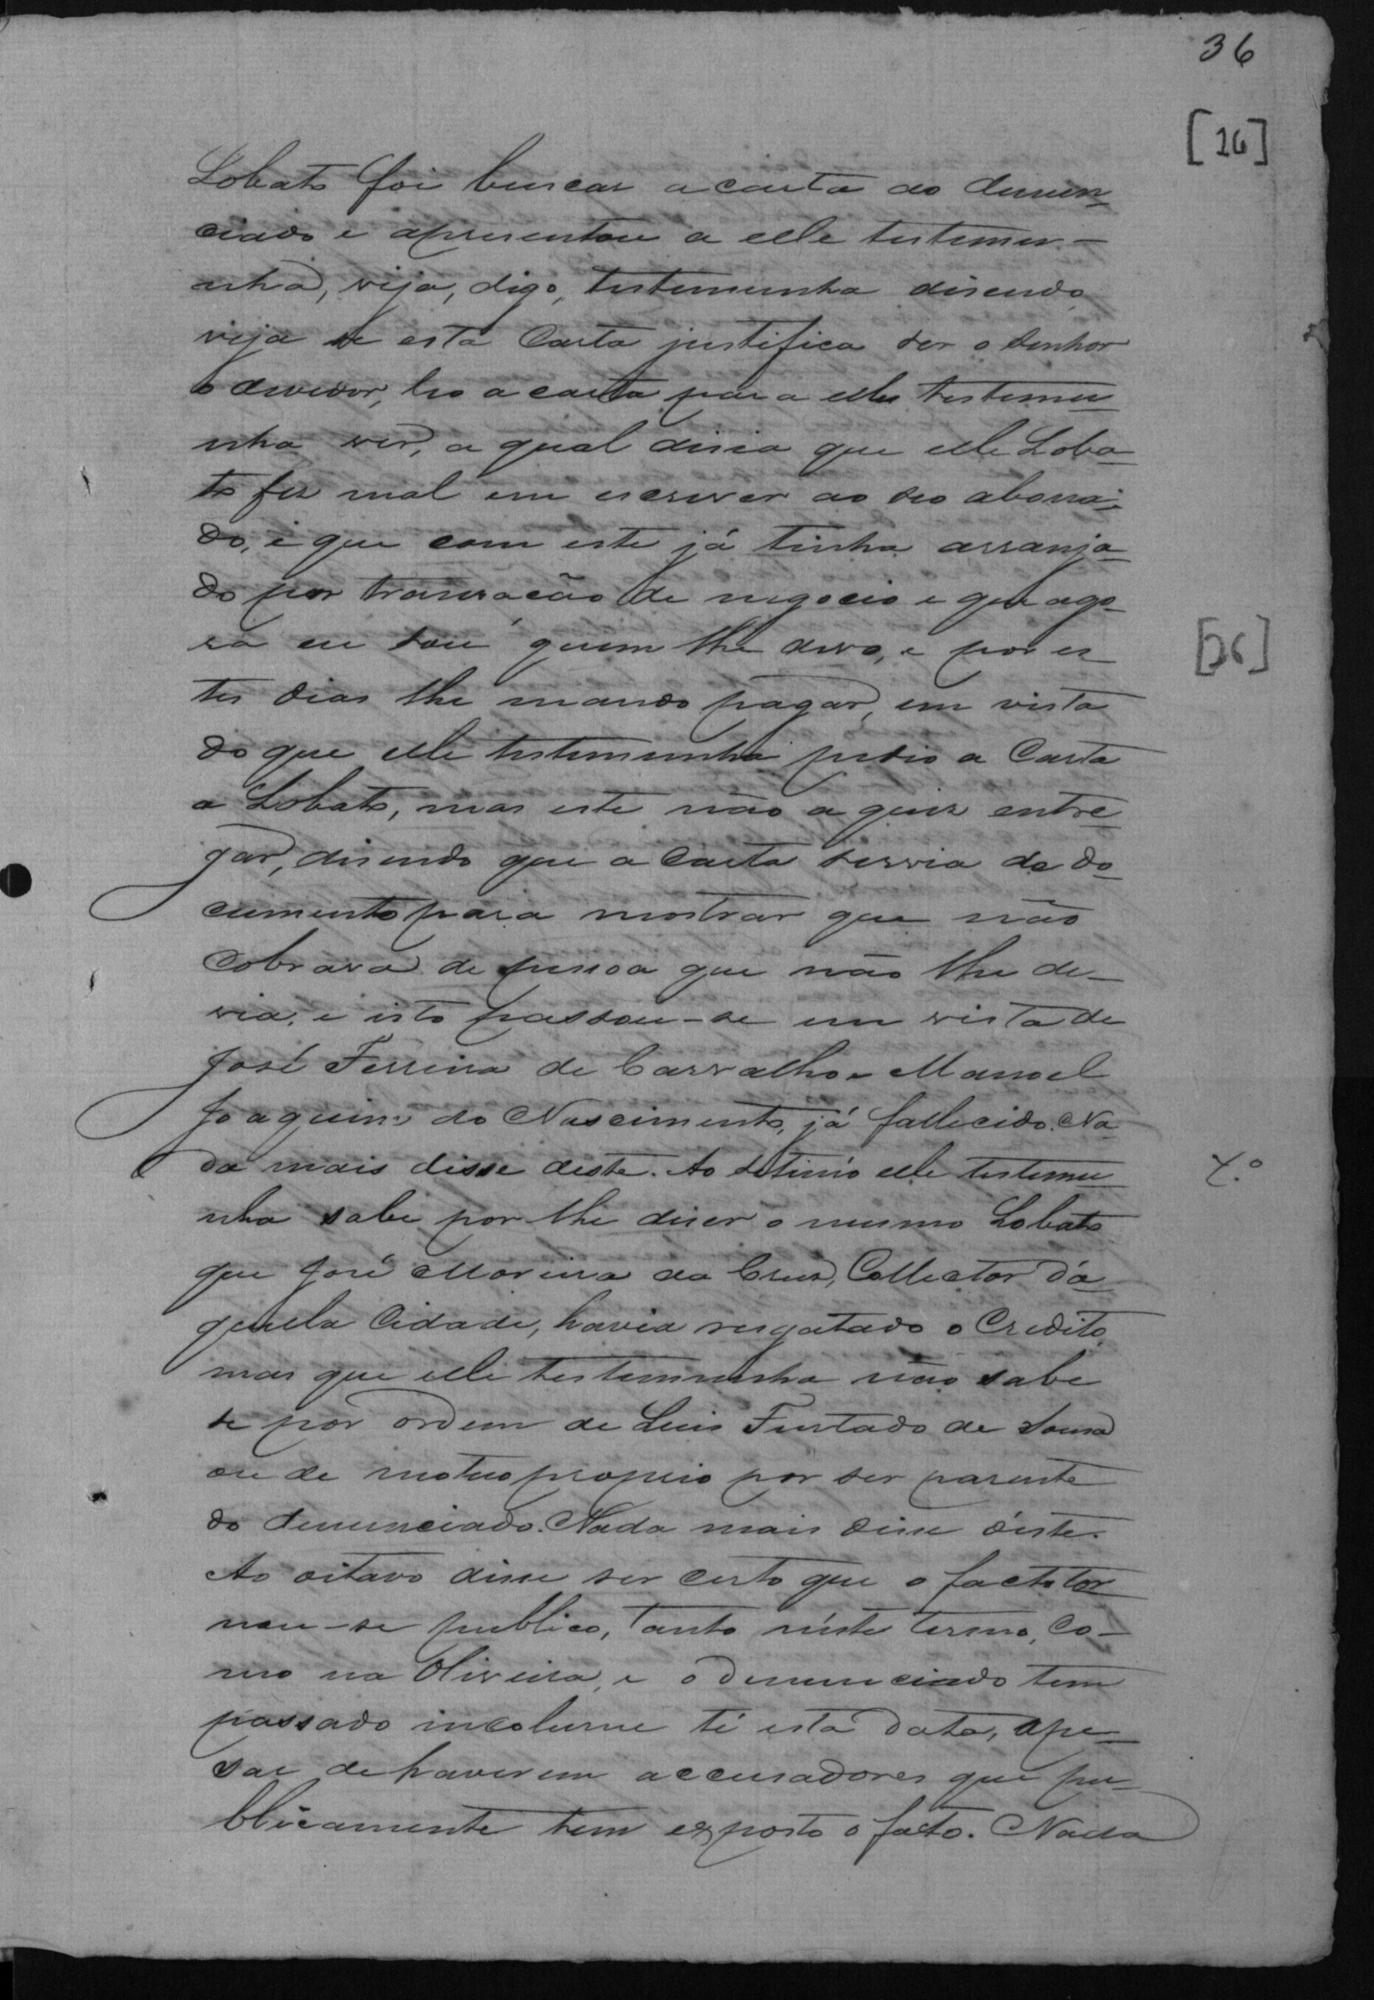 36
[26]
Lobato foi buscar a carta do denun-
ciado e apresentou a elle testemu-
nha, veja, digo, testemunha disendo
veja se esta Carta justifica ser o Senhor
o devedor, leo a carta para elle testemu
nha ver, a qual disia que elle Loba-
to fez mal em escrever ao seo abona-
do, e que com este já tinha arranja-
do por transacão de negocio e que ago-
ra eu sou quem lhe devo, e por es
tes dias lhe mando pagar, em vista
do que elle testemunha pedio a Carta
a Lobato, mas este não a quiz entre-
gar, disendo que a Carta servia de do-
cumento para mostrar que não
cobrava de pessoa que não lhe de-
via, e isto passou-se em vista de
José Ferreira de Carvalho e Manoel
Joaquim do Nascimento, já fallecido. Na-
da mais disse deste. Ao setimo elle testemu
nha sabe por lhe diser o mesmo Lobato
que José Moreira da Cruz, Collector da-
quella Cidade, havia resgatado o Credito,
mas que elle testemunha não sabe
se por ordem de Luis Furtado de Sousa
ou de motuo proprio por ser parente
do denunciado. Nada mais disse deste.
Ao oitavo disse ser certo que o facto tor
nou-se publico, tanto néste termo, co-
mo na Oliveira, e o denunciado tem
passado incolume té esta data, ape-
sar de haverem accusadores que pu-
blicamente tem exposto o facto. Nada
[26]
7.º